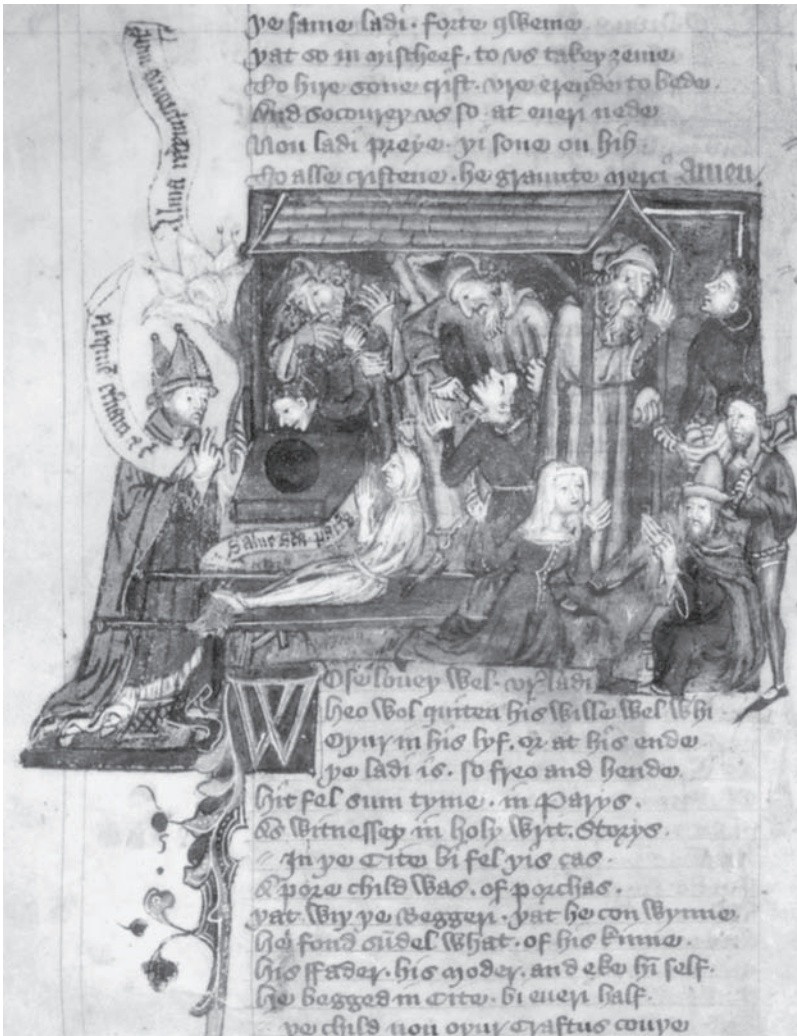 þe same ladi · forte qweme
þat so in mischeef · to vs takeþ ȝeme
To hire sone crist · vre erende to bede ·
And socoureþ vs so at eueri nede
Nou ladi preye · þi sone on hih
To alle cristene · he graunte merci Amen
Alma redemptoris mat
Salue sca parēs
Whose loueþ wel · vr ladi
Heo wol quiten his wille wel whi
Oþur in his lyf · or at his ende
þe ladi is · so freo and hende
Hit fel sum tyme · in Parys ·
As witnesseþ in holy writ · storys ·
In þe Cite bi fel þis cas ·
A pore child was · of porchas ·
þat wiþ þe beggeri · þat he con wynne
he fond sūdel what · of his kinne ·
his ffader · his moder · and eke hī self ·
he begged in Cite · bi eueri half ·
þe child non oþur craftus couþe